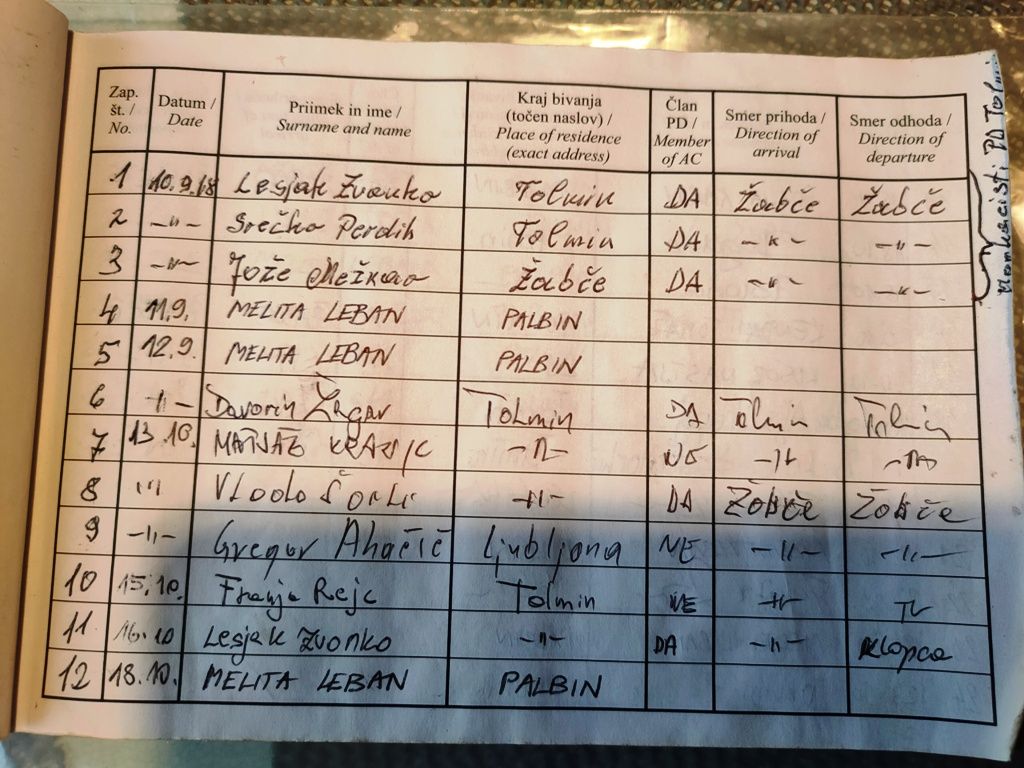 Zap. št. / No. Datum / Date Priimek in ime / Surname and name Kraj bivanja (točen naslov) / Place of residence (exact address) Član PD / Member of AC Smer prihoda / Direction of arrival Smer odhoda / Direction of departure
1 10.9.18 Lesjak Zvonko Tolmin DA Žabče Žabče
2 -"- Srečko Perdih Tolmin DA -"- -"-
3 -"- Jože Žabče DA -"- -"-
4 11.9. MELITA LEBAN PALBIN
5 12.9. MELITA LEBAN PALBIN
6 -"- Davorin Žagar Tolmin DA Tolmin Tolmin
7 13.10. MATJAŽ -"- NE -"- -"-
8 "' -"- DA Žabče Žabče
9 -"- Gregor Ahačič Ljubljana NE -"- -"-
10 15.10. Franja Rejc Tolmin NE -"- -"-
11 16.10 Lesjak Zvonko -"- DA -"- Klopca
12 18.10. MELITA LEBAN PALBIN
PD Tolmin